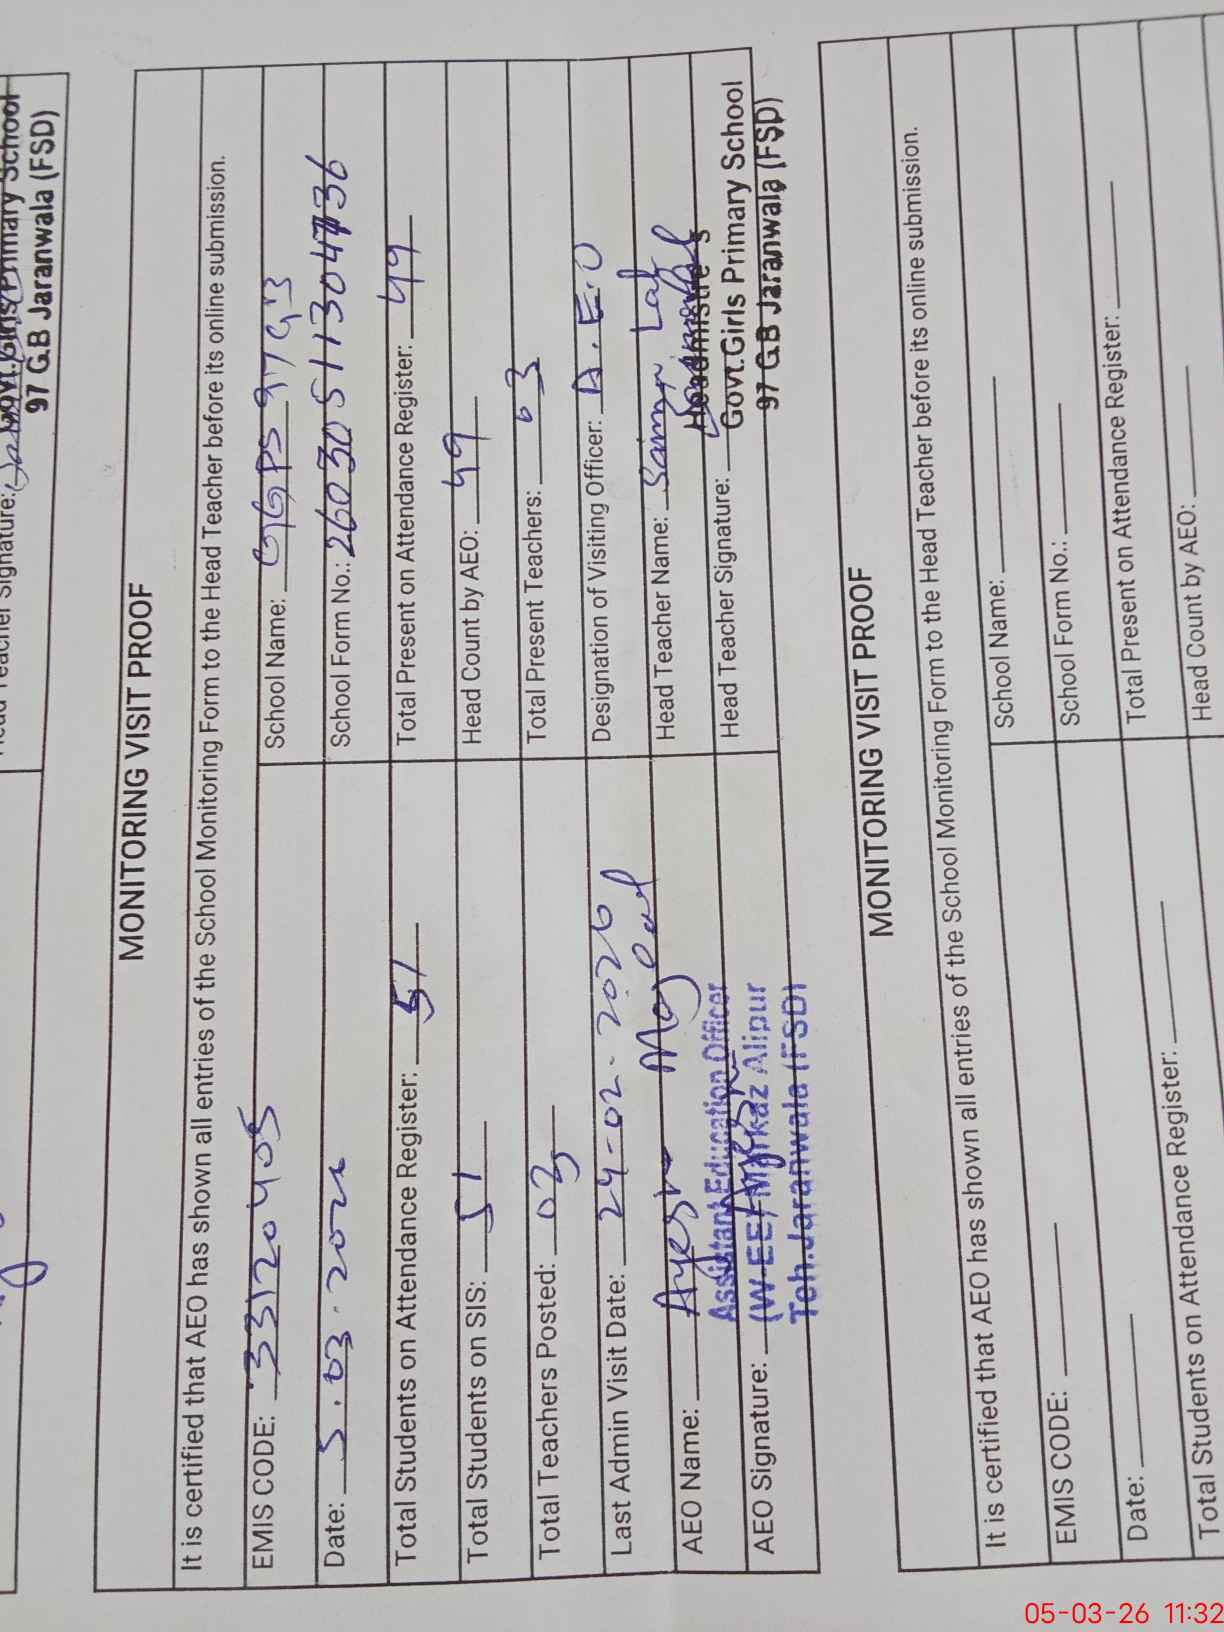 Head Teacher Signature:
Govt.Girls Primary School
97 G.B Jaranwala (FSD)
MONITORING VISIT PROOF
It is certified that AEO has shown all entries of the School Monitoring Form to the Head Teacher before its online submission.
EMIS CODE: 33120405 School Name: GGPS 97 GB
Date: 5.03.202 School Form No.: 260305113047136
Total Students on Attendance Register: 51 Total Present on Attendance Register: 49
Total Students on SIS: 51 Head Count by AEO: 49
Total Teachers Posted: 03 Total Present Teachers: 03
Last Admin Visit Date: 24-02-2026 Designation of Visiting Officer: A.E.O
AEO Name: Ayesha Head Teacher Name: Saima
AEO Signature: Head Teacher Signature:
Assistant Education Officer
(W-EE) Markaz Alipur
Teh.Jaranwala (FSD)
Headmistress
Govt.Girls Primary School
97 G.B Jaranwala (FSD)
MONITORING VISIT PROOF
It is certified that AEO has shown all entries of the School Monitoring Form to the Head Teacher before its online submission.
EMIS CODE: School Name:
Date: School Form No.:
Total Students on Attendance Register: Total Present on Attendance Register:
Head Count by AEO:
05-03-26 11:32